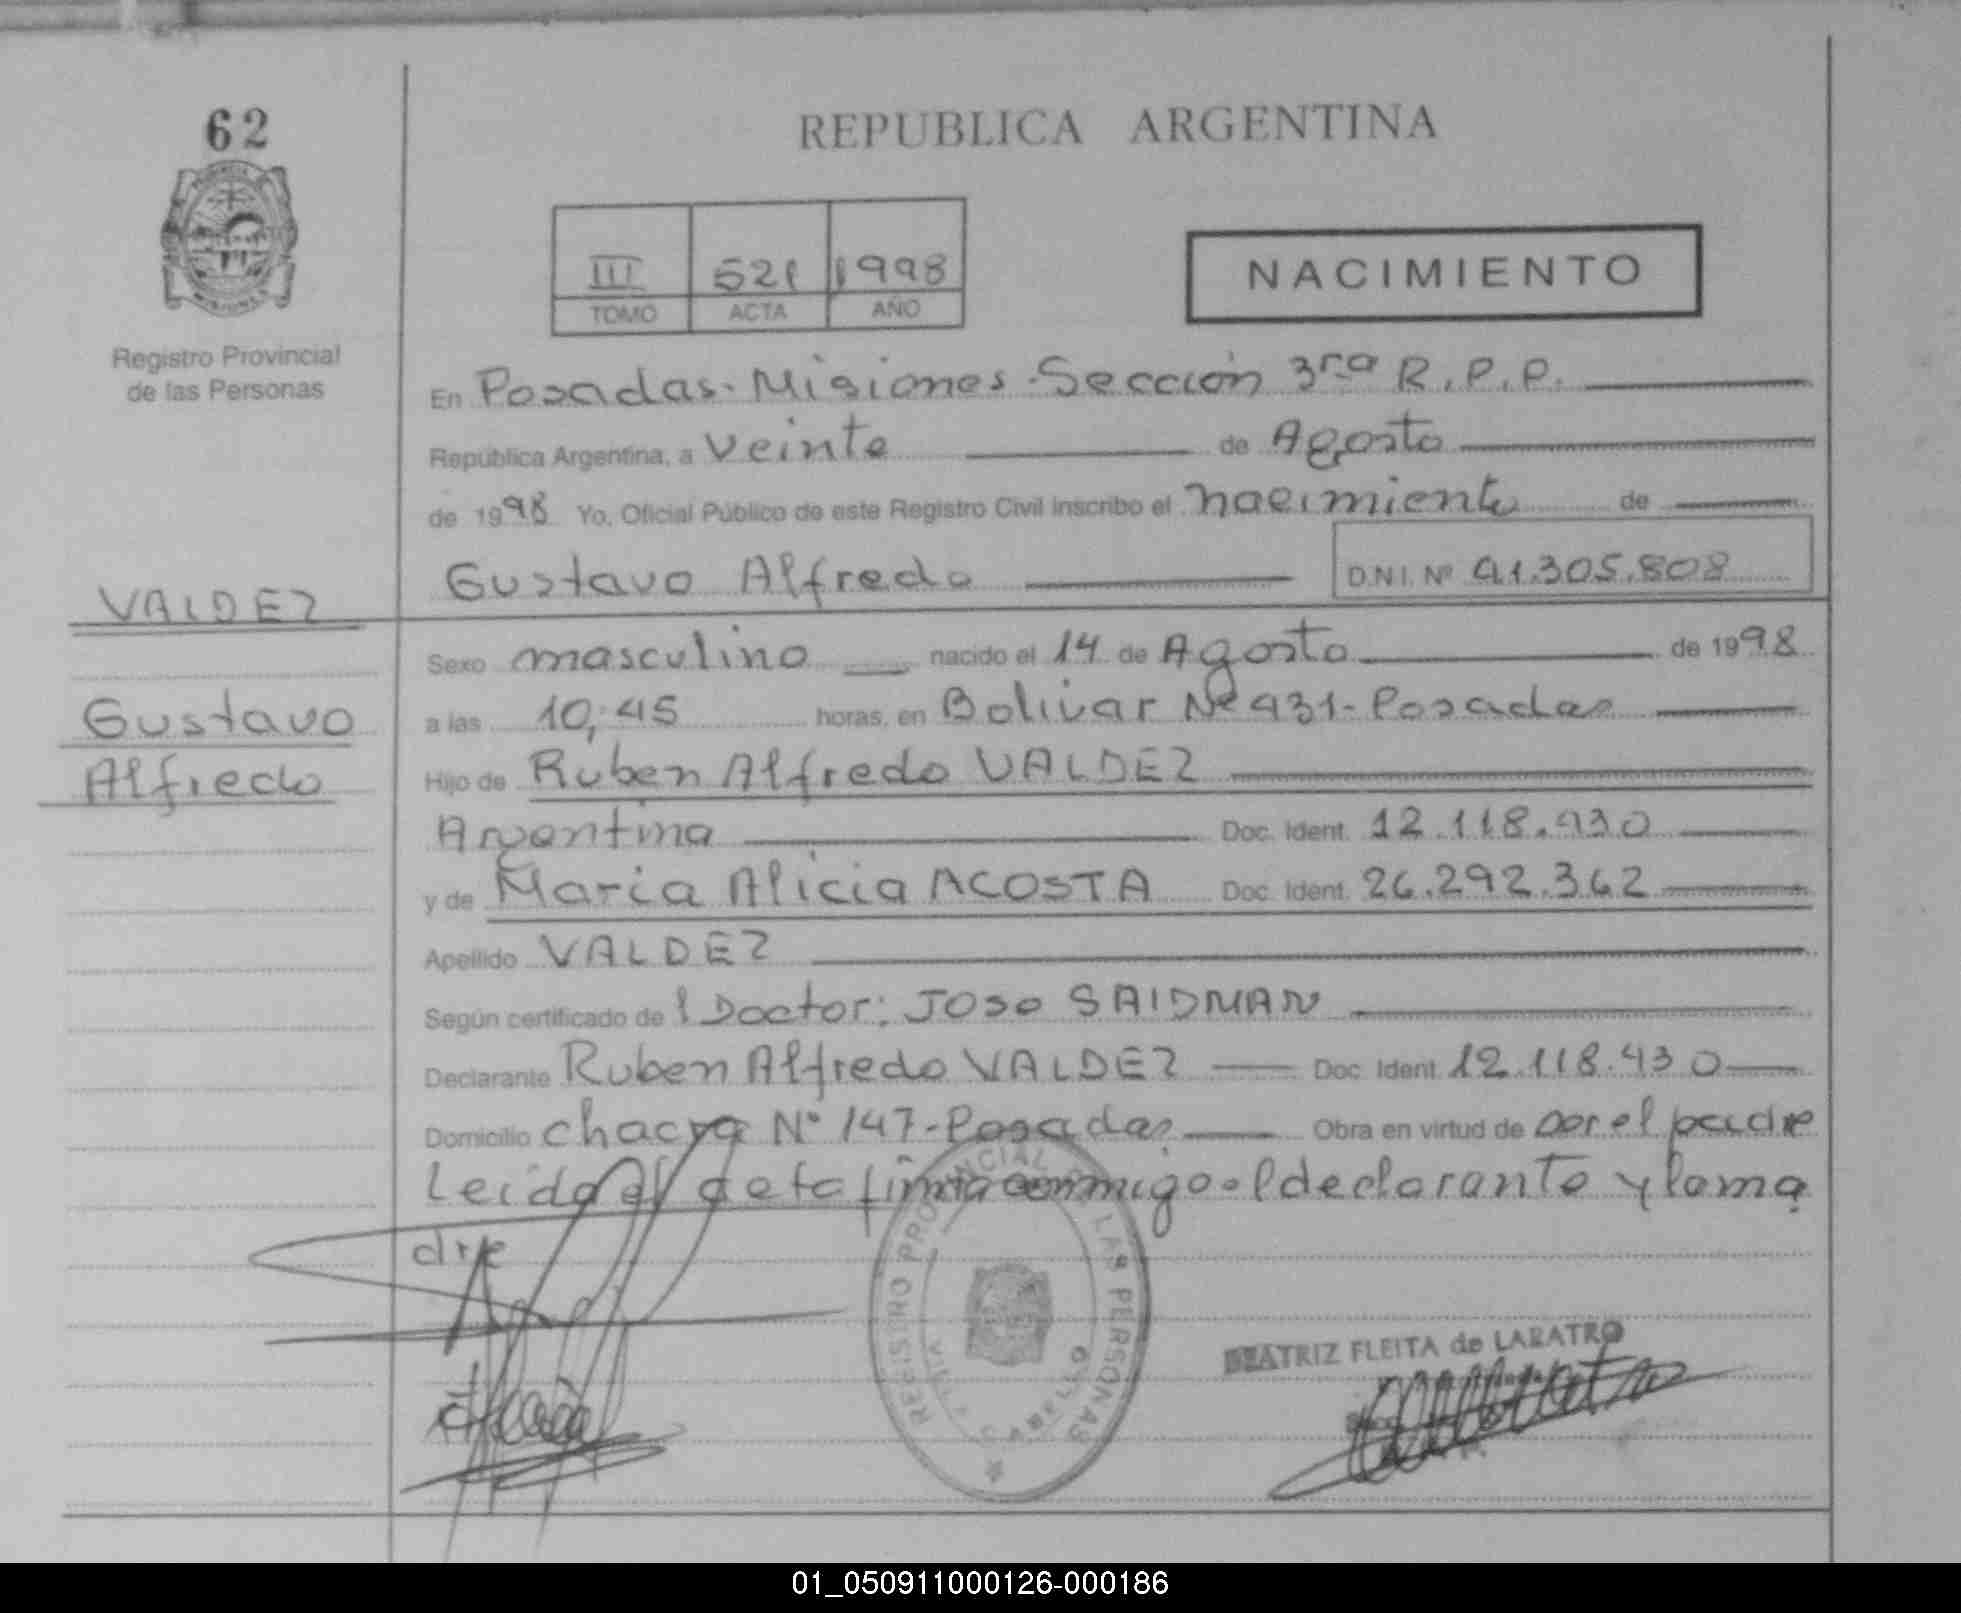 62
REPUBLICA ARGENTINA
III 521 1998
TOMO ACTA AÑO
NACIMIENTO
Registro Provincial
de las Personas
En Posadas-Misiones-Sección 3ra R.P.P.
República Argentina, a Veinte de Agosto
de 1998 Yo, Oficial Público de este Registro Civil inscribo el nacimiento de
Gustavo Alfredo D.N.I. Nº 41.305.808
VALDEZ
Sexo masculino nacido el 14 de Agosto de 1998
Gustavo
a las 10,45 horas, en Bolivar Nº 431-Posadas
Alfredo
Hijo de Ruben Alfredo VALDEZ
Argentina Doc. Ident. 12.118.430
y de Maria Alicia ACOSTA Doc. Ident. 26.292.362
Apellido VALDEZ
Según certificado del Doctor: Jose SAIDMAN
Declarante Ruben Alfredo VALDEZ Doc. Ident. 12.118.430
Domicilio chacra Nº 147-Posadas Obra en virtud de ser el padre
Leida el acta firma conmigo el declarante y la ma
dre
REGISTRO PROVINCIAL DE LAS PERSONAS
BEATRIZ FLEITA de LABATRO
01_050911000126-000186